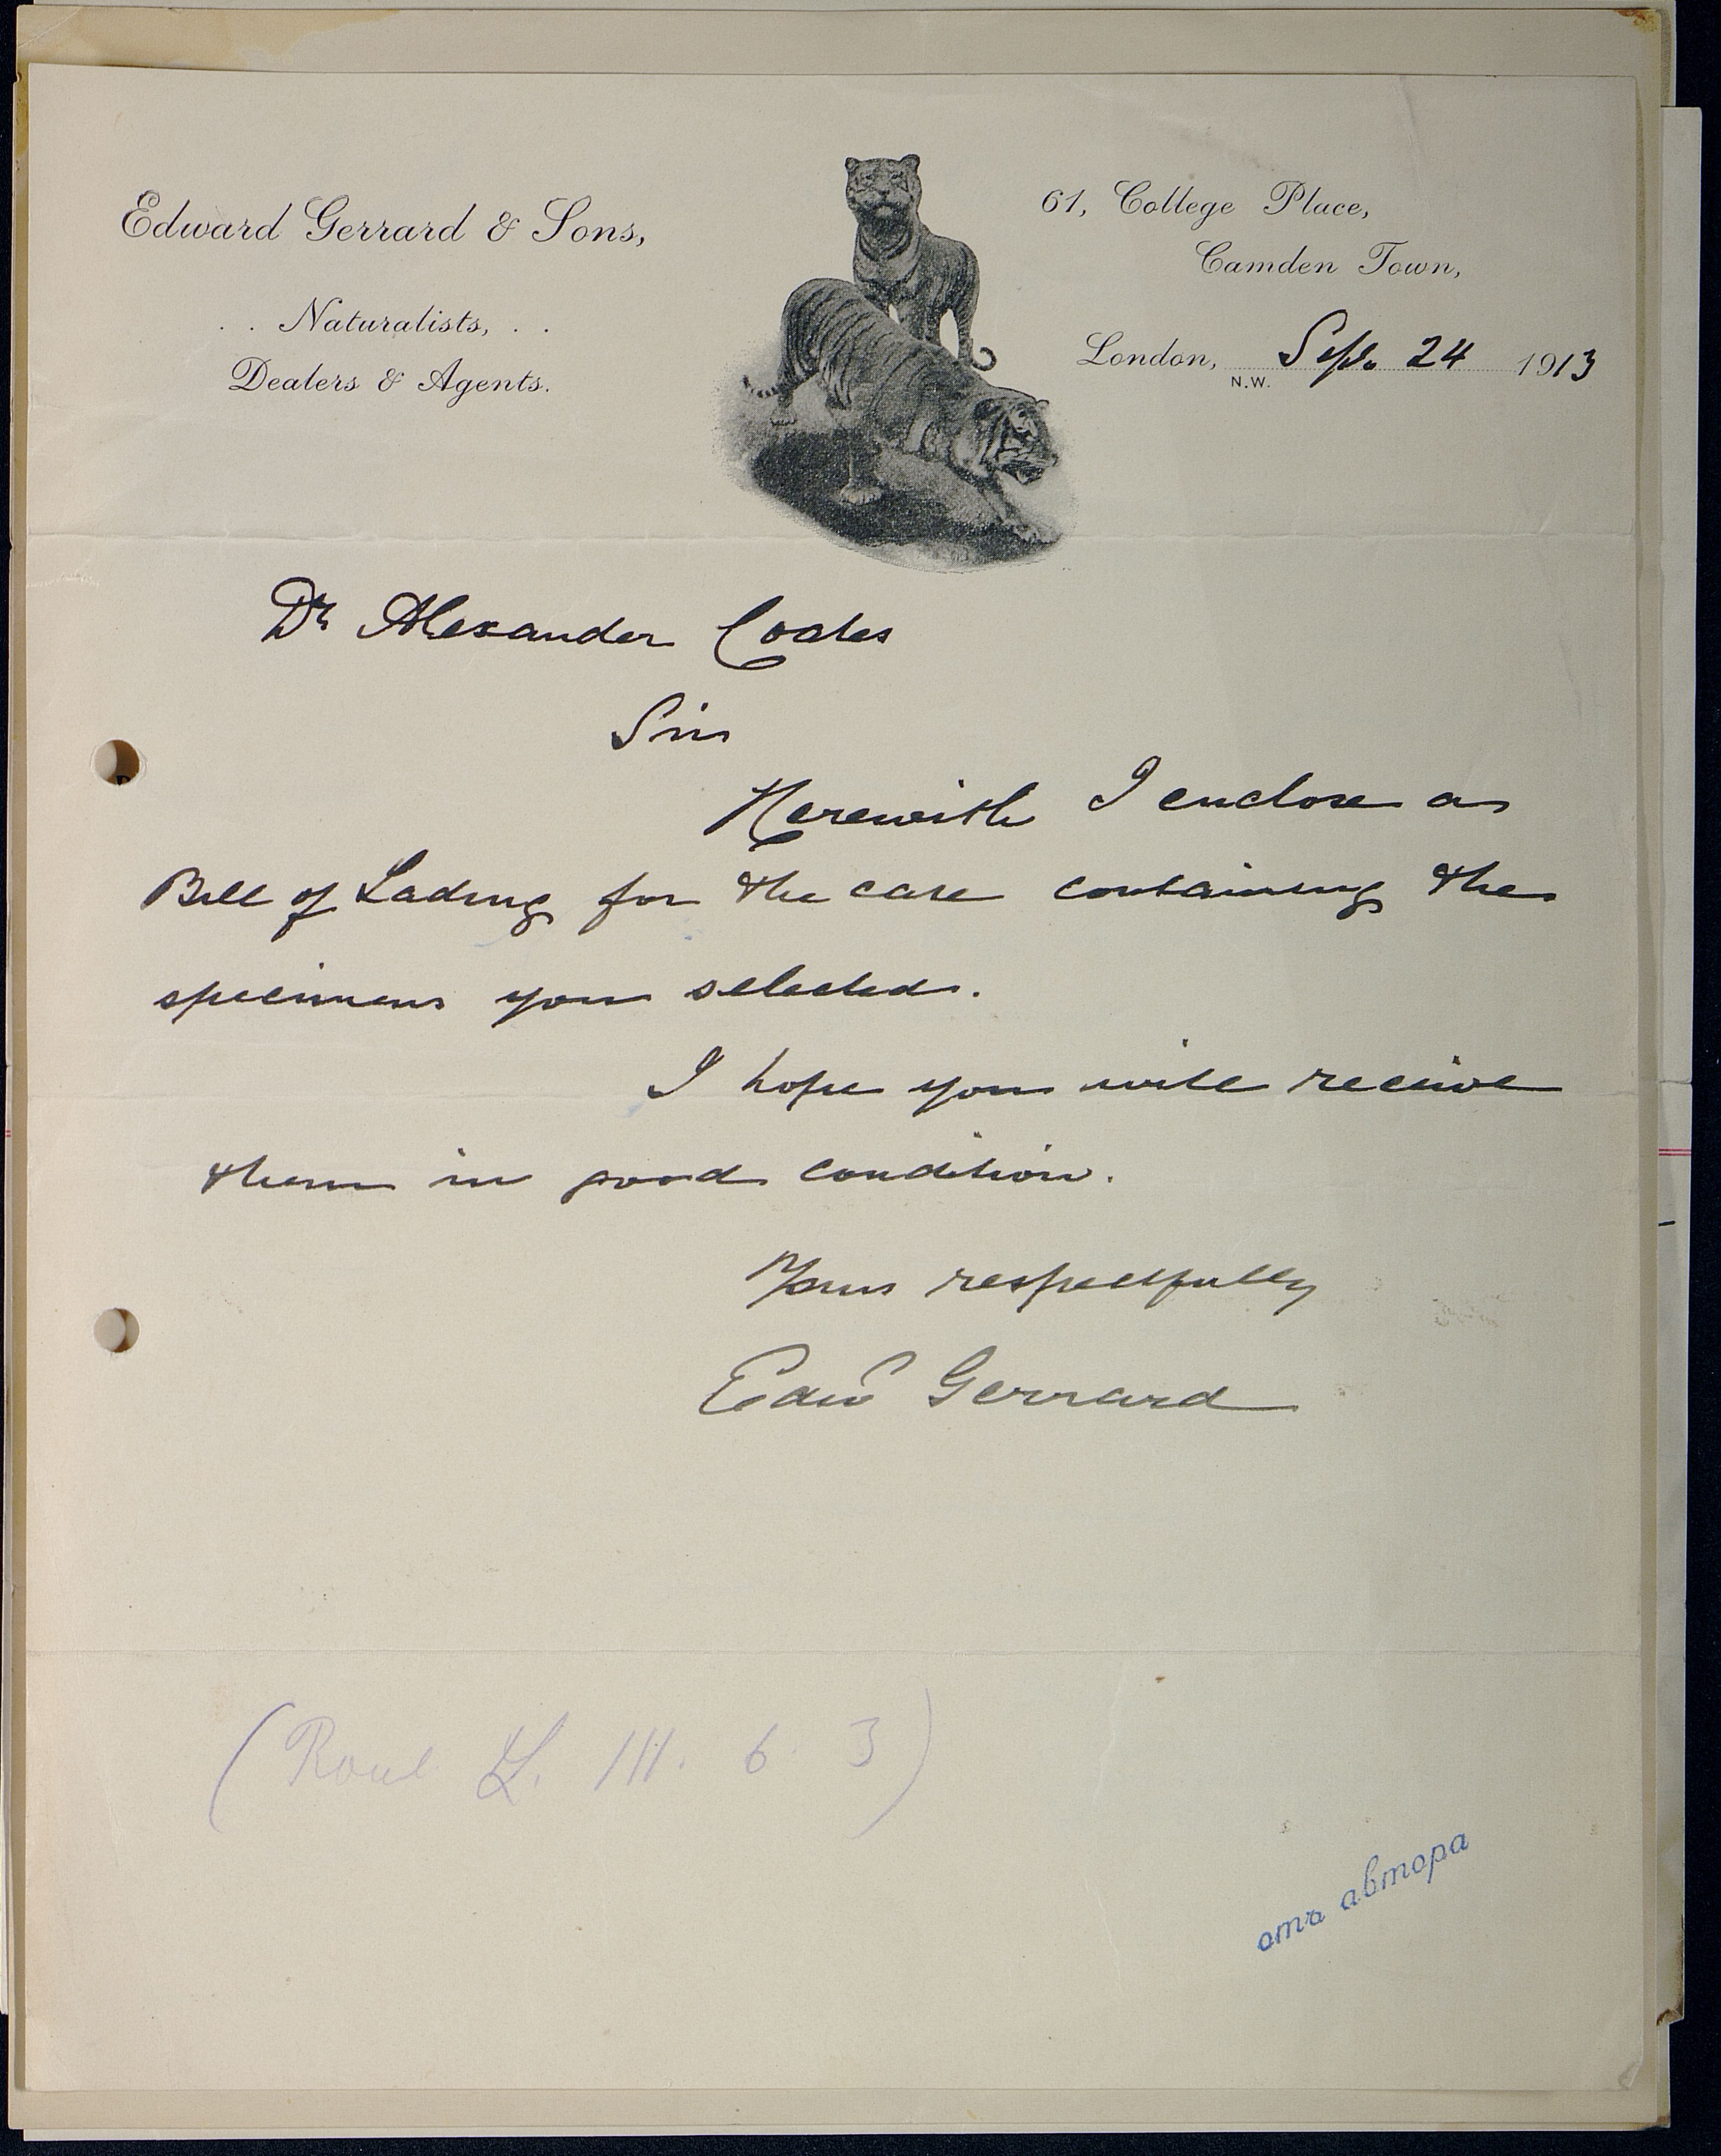 Edward Gerrard & Sons,
. . Naturalists, . .
Dealers & Agents.
61, College Place,
Camden Town,
London, N.W. Sept. 24 1913
Dr Alexander Coates
Sir
Herewith I enclose a
Bill of Lading for the case containing the
specimens you selected.
I hope you will receive
them in good condition.
Yours respectfully
Edwd Gerrard
( L. III. 6. 3)
отъ автора